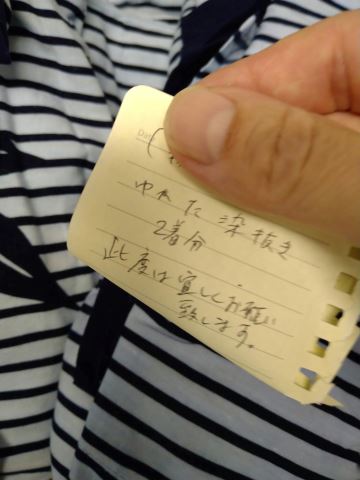 ゆかた 染抜き
2着分
此度は宜しくお願い
致します。